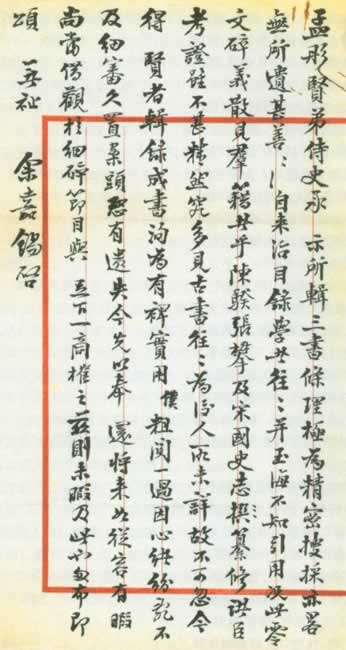 孟彤賢弟侍史承 示所輯三書條理極為精密搜採亦畧
無所遺甚善〻〻自來治目錄學者往〻并玉海不知引用況此零
文碎義散見羣籍者乎陳騤張攀及宋國史志撰纂修諸臣
考證雖不甚精然究多見古書往〻為後人所未詳故不可忽今
得 賢者輯錄成書洵為有裨實用僕粗閱一過因心緒紛亂不
及細審久置案頭恐有遺失今先以奉 還將來如從容有暇
尚當借觀於細碎節目與 足下一商榷之茲則未暇及此也匆布即
頌 祉
余嘉錫啓